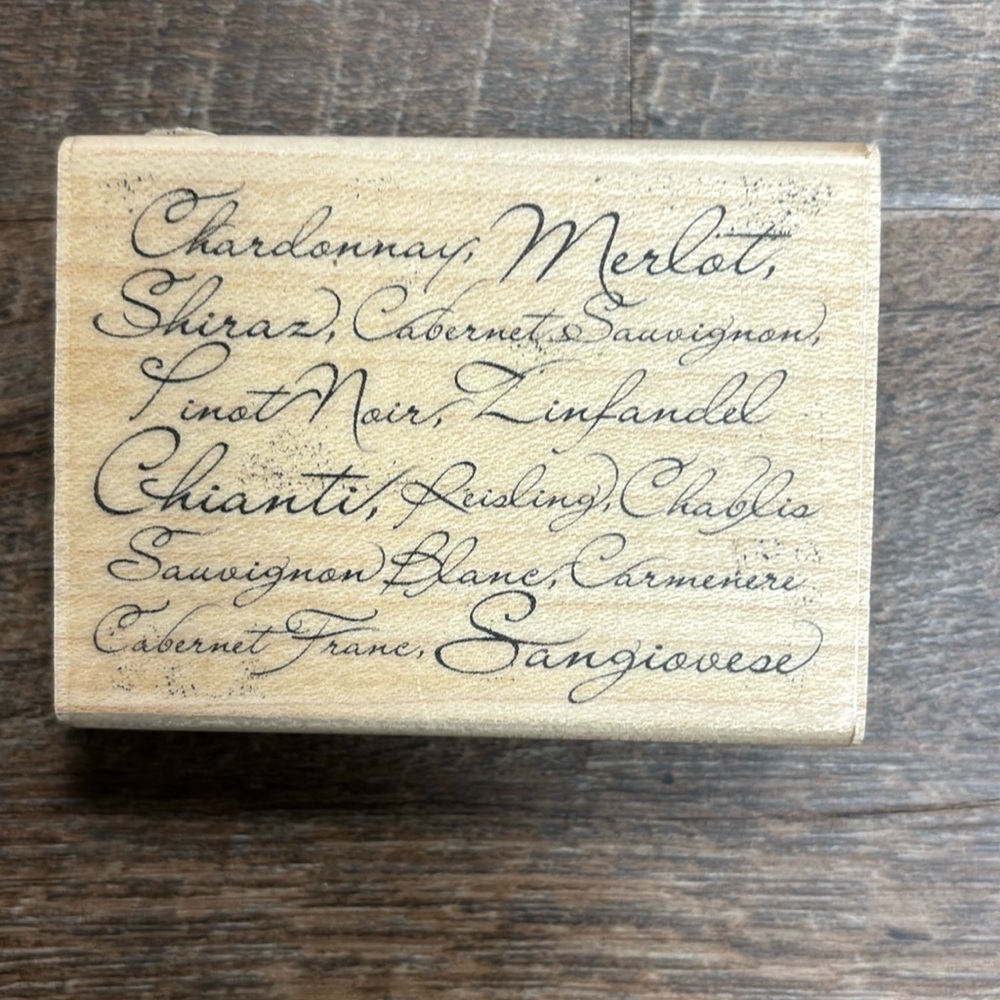 Chardonnay, Merlot,
Shiraz, Cabernet Sauvignon,
Pinot Noir, Zinfandel
Chianti, Reisling, Chablis
Sauvignon Blanc, Carmenere
Cabernet Franc, Sangiovese